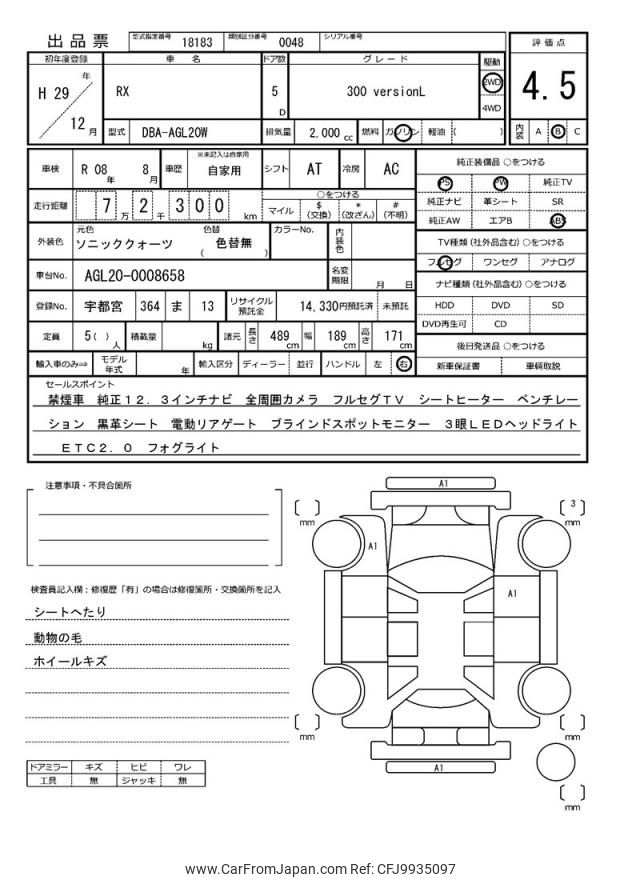 出品票 型式指定番号 18183 類別区分番号 0048 シリアル番号
初年度登録 車名 ドア数 グレード 駆動 評価点
H 29 年 12 月 RX 5 D 300 versionL 2WD 4WD 4.5
型式 DBA-AGL20W 排気量 2,000 cc 燃料 ガソリン 軽油 ( ) 内装 A B C
車検 R 08 年 8 月 車歴 ※未記入は自家用 自家用 シフト AT 冷房 AC
走行距離 7 万 2 千 3 0 0 km ○をつける マイル $ (交換) * (改ざん) # (不明)
外装色 元色 ソニッククォーツ 色替 ( 色替無 ) カラーNo. 内装色
車台No. AGL20-0008658 名変期限 月 日
登録No. 宇都宮 364 ま 13 リサイクル預託金 14,330円預託済 未預託
定員 5( ) 人 積載量 kg 諸元 長さ 489 cm 幅 189 cm 高さ 171 cm
輸入車のみ⇒ モデル年式 年 輸入区分 ディーラー 並行 ハンドル 左 右
純正装備品 ○をつける
PS PW 純正TV
純正ナビ 革シート SR
純正AW エアB ABS
TV種類 (社外品含む) ○をつける
フルセグ ワンセグ アナログ
ナビ種類 (社外品含む) ○をつける
HDD DVD SD
DVD再生可 CD
後日発送品 ○をつける
新車保証書 車輌取説
セールスポイント
禁煙車 純正12.3インチナビ 全周囲カメラ フルセグTV シートヒーター ベンチレー
ション 黒革シート 電動リアゲート ブラインドスポットモニター 3眼LEDヘッドライト
ETC2.0 フォグライト
注意事項・不具合箇所
検査員記入欄：修復歴「有」の場合は修復箇所・交換箇所を記入
シートへたり
動物の毛
ホイールキズ
ドアミラー キズ ヒビ ワレ
工具 無 ジャッキ 無
A1
mm
3
mm
A1
A1
mm
mm
A1
mm
www.CarFromJapan.com Ref: CFJ9935097